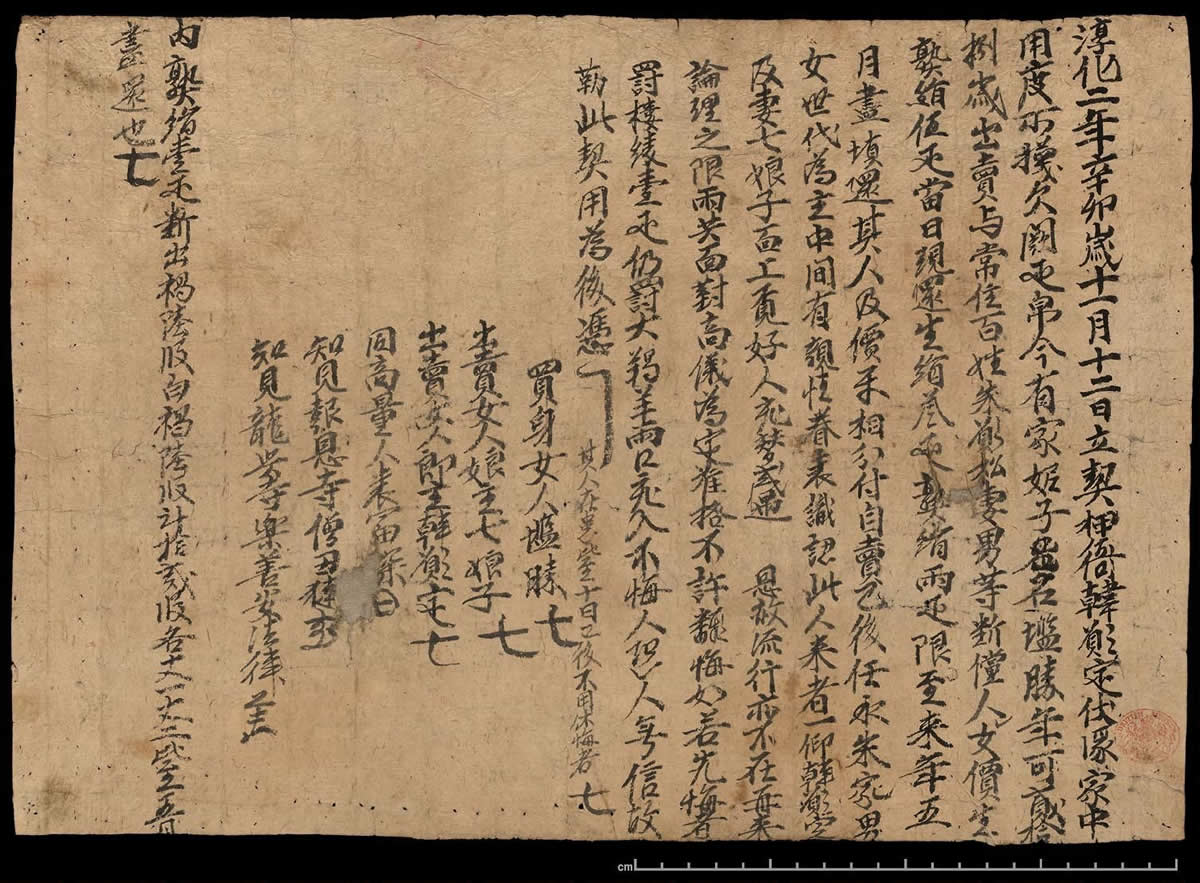 淳化二年辛卯歲十一月十二日立契押衙韓願定伏緣家中
用度不攓欠闕疋帛今有家妮子名𡒄勝年可貳拾
捌歲出賣与常住百姓朱願松妻男等斷儅人女價生
熟絹伍疋當日現還生絹叁疋熟絹兩疋限至來年五
月盡填還其人及價互相分付自賣已後任永朱家男
女世代為主中間有親性眷表識認此人來者一仰韓願定
及妻七娘子面上覓好人充替或遇恩赦流行亦不在再來
論理之限兩共面對商儀為定准格不許翻悔如若先悔者
罰樓綾壹疋仍罰大羯羊兩口充入不悔人恐人無信故
勒此契用為後憑 其人在患比至十日已後不用休悔者 七
買身女人𡒄勝 七
出賣女人娘主七娘子 七
出賣女人郎主韓願定 七
同商量人袁富深
知見報恩寺僧丑撻
知見龍興寺樂善安法律
內熟絹壹疋斷出褐陸段白褐陸段計拾貳段各丈一丈二比至五月
盡還也 七